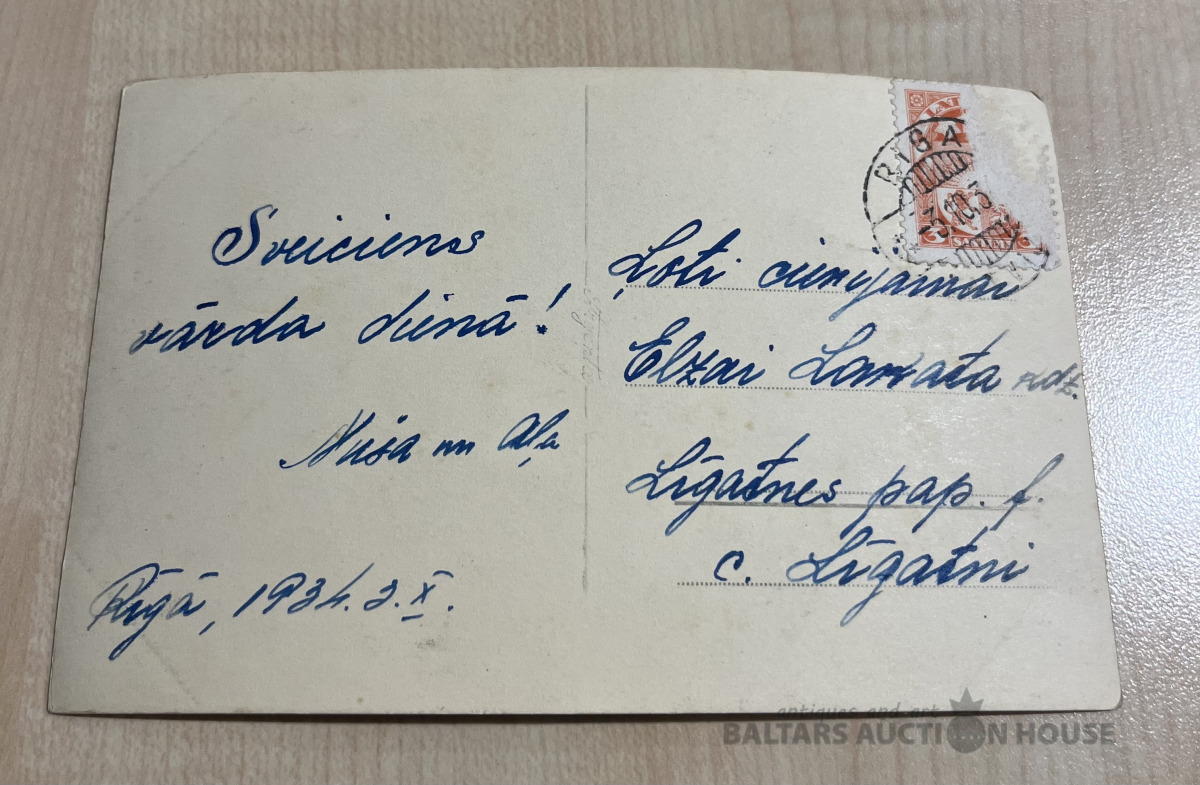 Sveiciens
vārda dienā!
un Aļa
Rīgā, 1934. 3. X.
Ļoti cienījamai
Elzai
Līgatnes pap. f.
c. Līgatni
RIGA
-3.10.3
LAT
SANTIMI
antiques and art
BALTARS AUCTION HOUSE